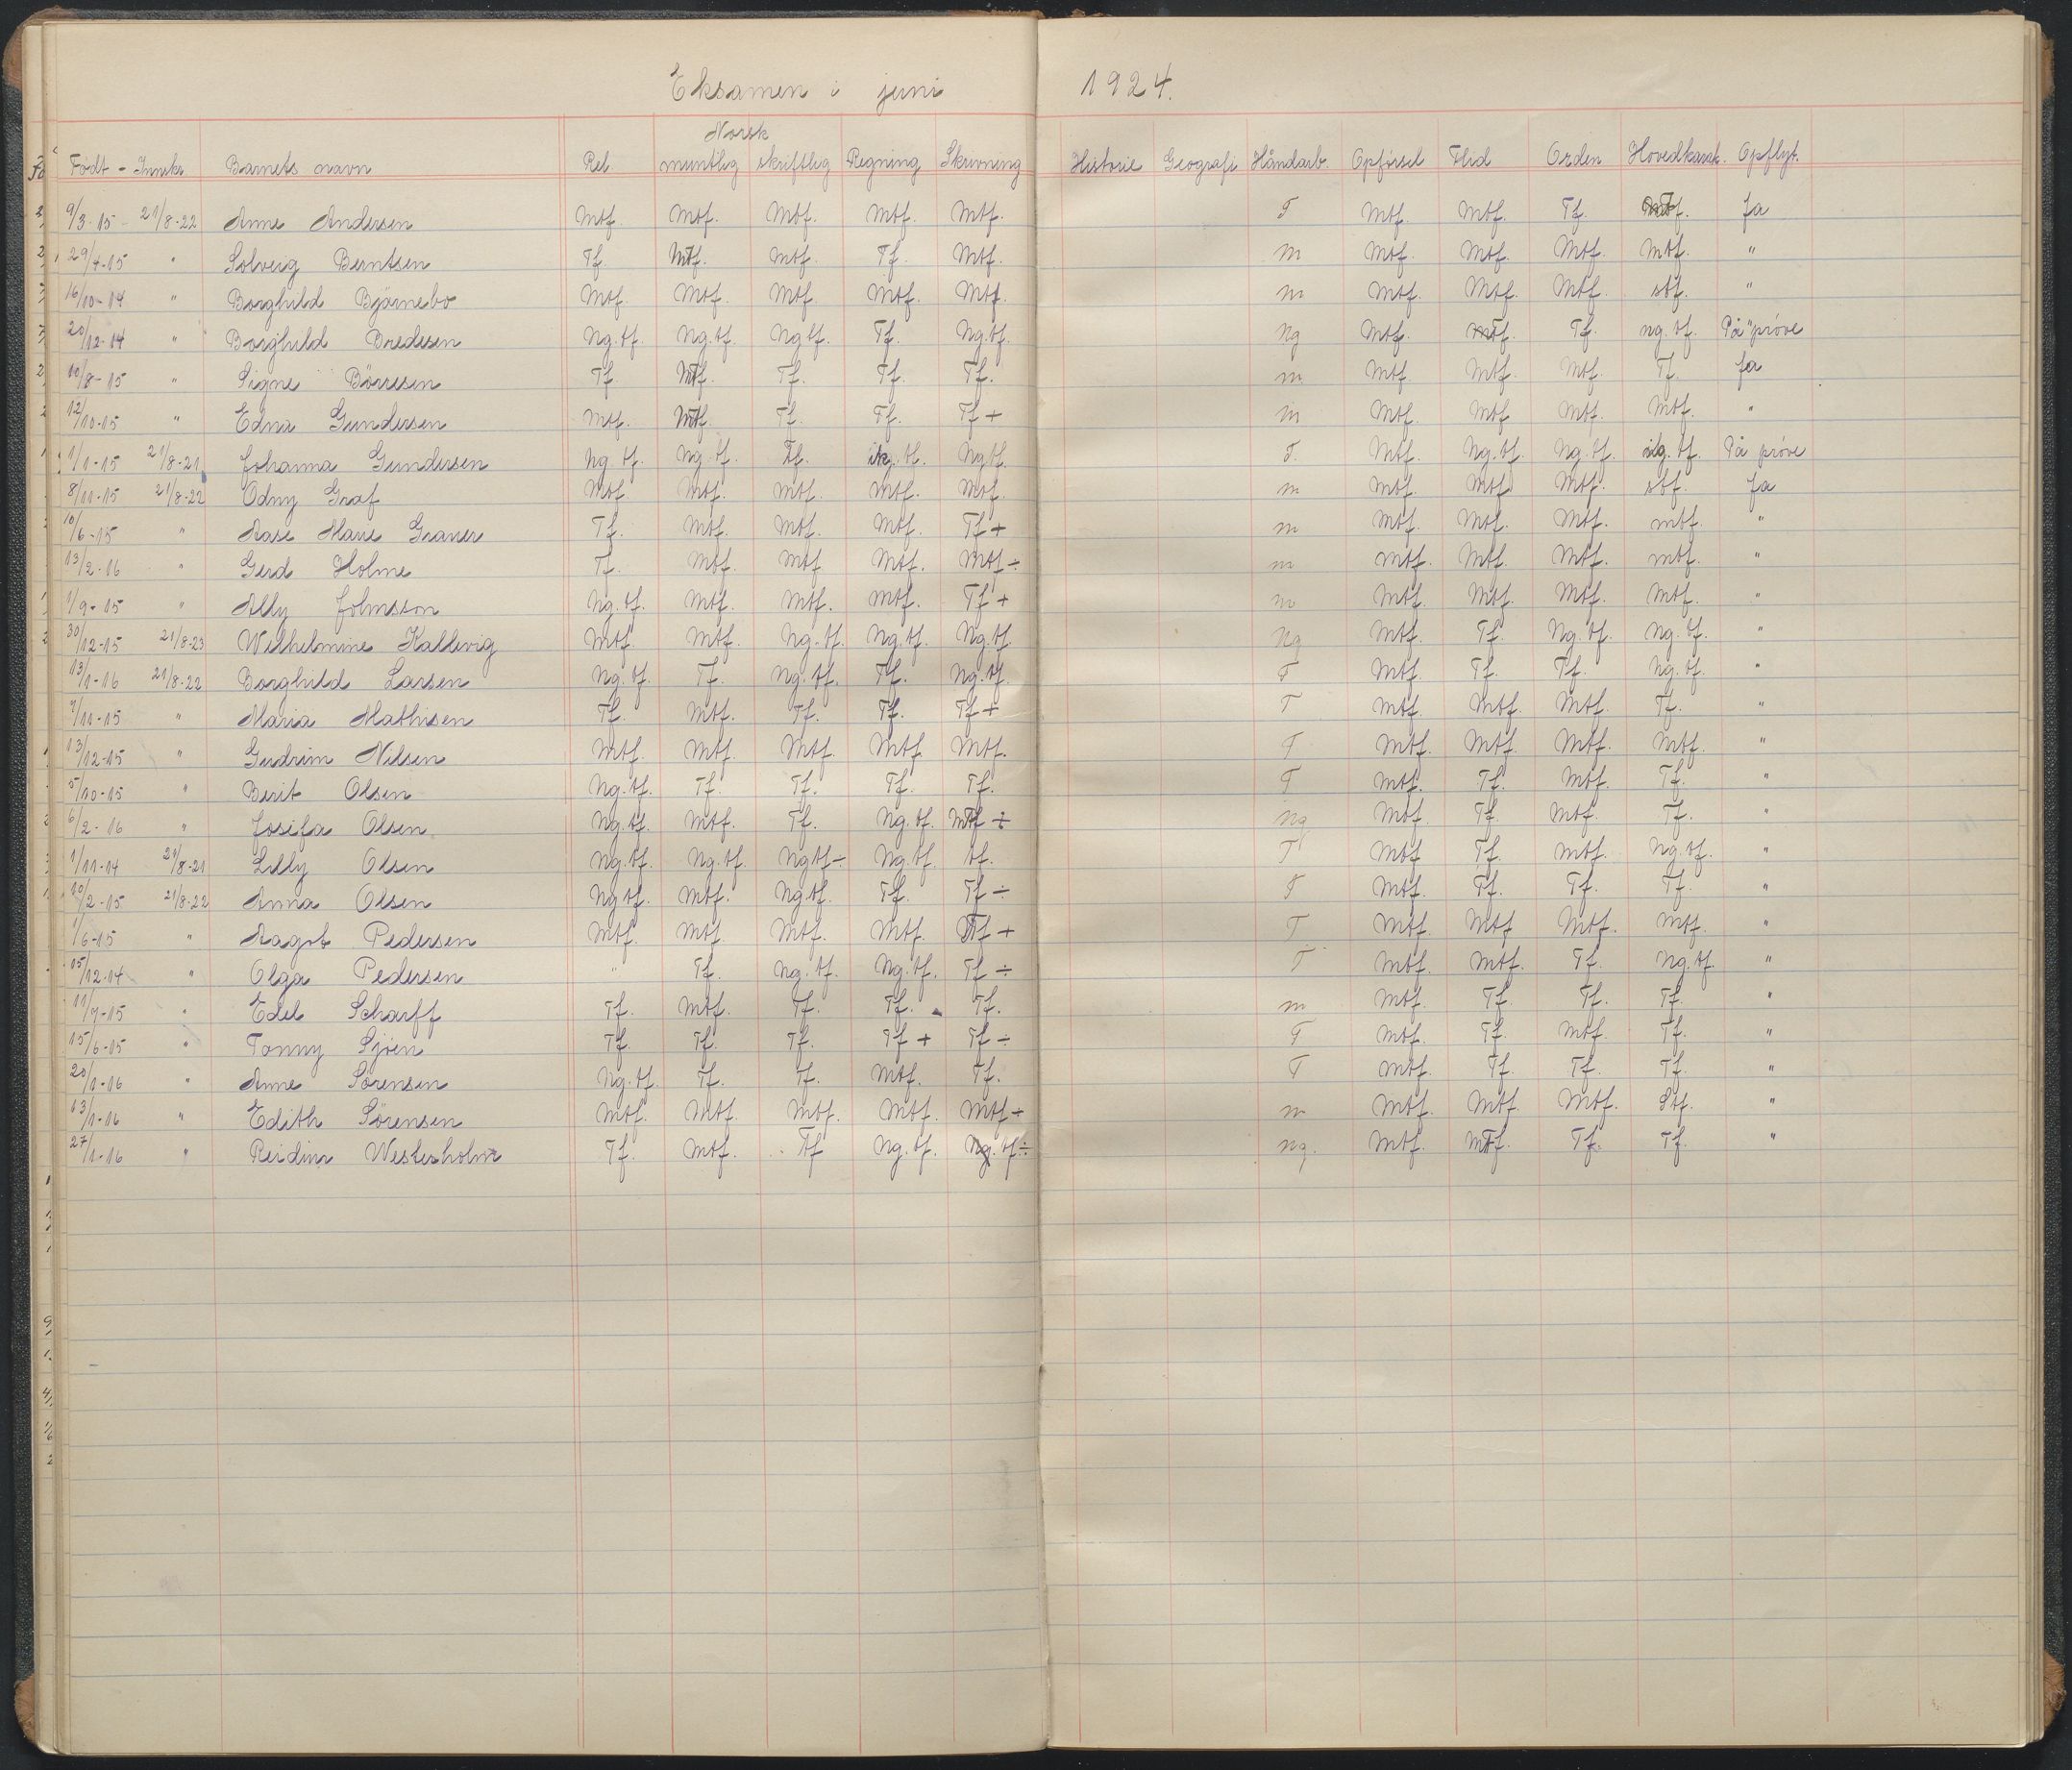 Eksamen i juni 1924.
Norsk
Födt - Innskr. Barnets navn Rel. muntlig skriftlig Regning Skrivning Historie Geografi Håndarb. Opförsel Flid Orden Hovedkarak. Opflyt.
9/3-15 - 21/8-22 Anne Andersen Mtf. Mtf. Mtf. Mtf. Mtf. T Mtf. Mtf. Tf. Mtf. Ja
29/4-15 " Solveig Berntsen Tf. Mtf. Mtf. Tf. Mtf. m Mtf. Mtf. Mtf. Mtf. "
16/10-14 " Borghild Bjørnebo Mtf. Mtf. Mtf. Mtf. Mtf. m Mtf. Mtf. Mtf. stf. "
20/12-14 " Borghild Bredesen Ng.tf. Ng.tf. Ng tf. Tf. Ng.tf. Ng Mtf. Tf. ng.tf. "På" pröve
10/8-15 " Signe Börresen Tf. Tf. Tf. Tf. m Mtf. Mtf. Mtf. Tf. Ja
12/10-15 " Edna Gundersen Mtf. Tf. Tf. Tf + m Mtf. Mtf. Mtf. Mtf. "
1/1-15 21/8-21 Johanna Gundersen Ng.tf. Ng.tf. Tf. ik.tf. Ng.tf. T. Mtf. Ng.tf. Ng.tf. ng.tf. På pröve
8/11-15 21/8-22 Odny Graf Mtf. Mtf. Mtf. Mtf. Mtf. m Mtf. Mtf. Mtf. stf. Ja
10/6-15 " Aase Marie Graver Tf. Mtf. Mtf. Mtf. Tf + m Mtf. Mtf. Mtf. mtf. "
13/2-16 " Gerd Holme Tf. Mtf. Mtf. Mtf. Mtf ÷ m mtf. Mtf. Mtf. mtf. "
1/9-15 " Ally Johnsson Ng.tf. Mtf. Mtf. Mtf. Tf + m Mtf. Mtf. Mtf. Mtf. "
30/12-15 21/8-23 Wilhelmine Kallevig Mtf. Mtf. Ng.tf. Ng.tf. Ng.tf. Ng Mtf. Tf. Ng.tf. Ng.tf. "
13/1-16 21/8-22 Borghild Larsen Ng.tf. Tf. Ng.tf. Tf. Ng.tf. T Mtf. Tf. Tf. Ng.tf. "
7/11-15 " Maria Mathisen Tf. Mtf. Tf. Tf. Tf + T Mtf. Mtf. Mtf. Tf. "
13/12-15 " Gudrun Nilsen Mtf. Mtf. Mtf. Mtf. Mtf. T Mtf. Mtf. Mtf. Mtf. "
5/10-15 " Berit Olsen Ng.tf. Tf. Tf. Tf. Tf. T Mtf. Tf. Mtf. Tf. "
6/2-16 " Josefa Olsen Ng.tf. Mtf. Tf. Ng.tf. Tf ÷ ng Mtf. Tf. Mtf. Tf. "
1/11-14 21/8-21 Lilly Olsen Ng.tf. Ng.tf. Ng tf ÷ Ng.tf. tf. T Mtf. Tf. Mtf. Ng.tf. "
10/2-15 21/8-22 Anna Olsen Ng tf. Mtf. Ng tf. Tf. Tf ÷ T Mtf. Tf. Tf. Tf. "
1/6-15 " Aagot Pedersen Mtf. Mtf. Mtf. Mtf. Tf + T Mtf. Mtf. Mtf. Mtf. "
15/12-14 " Olga Pedersen " Tf. Ng.tf. Ng.tf. Tf ÷ T Mtf. Mtf. Tf. Ng.tf. "
11/7-15 " Edel Scharff Tf. Mtf. Tf. Tf. Tf. m Mtf. Tf. Tf. Tf. "
15/6-15 " Tonny Sjöen Tf. Tf. Tf. Tf + Tf ÷ T Mtf. Tf. Mtf. Tf. "
20/1-16 " Anne Sörensen Ng.tf. Tf. Tf. Mtf. Tf. T Mtf. Tf. Tf. Tf. "
13/1-16 " Edith Sörensen Mtf. Mtf. Mtf. Mtf. Mtf ÷ m Mtf. Mtf. Mtf. Stf. "
27/1-16 " Reidun Westerholm Tf. Mtf. Tf Ng.tf. Ng.tf ÷ ng. Mtf. Tf. Tf. Tf. "